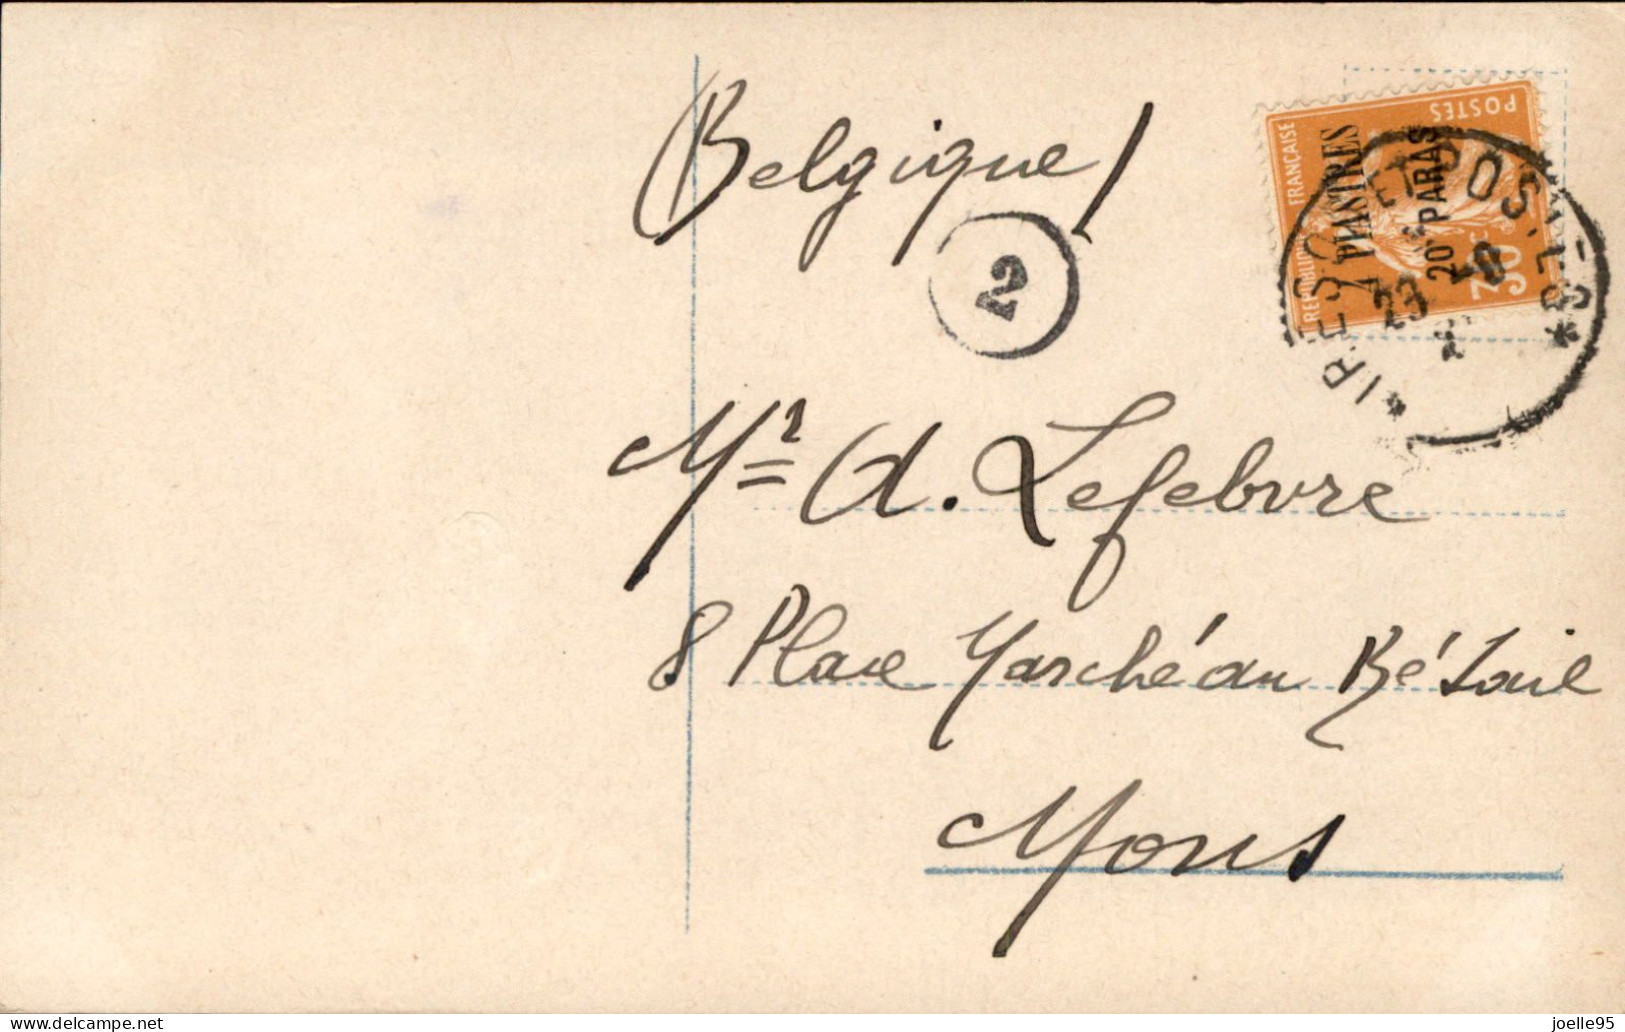 Belgique /
2
POSTES
REPUBLIQUE FRANÇAISE
30c
4 PIASTRES
20 PARAS
*TRESOR ET POSTES *
23
Mr A. Lefebvre
8 Place Marché au Bétail
Mons
delcampe.net
joelle95